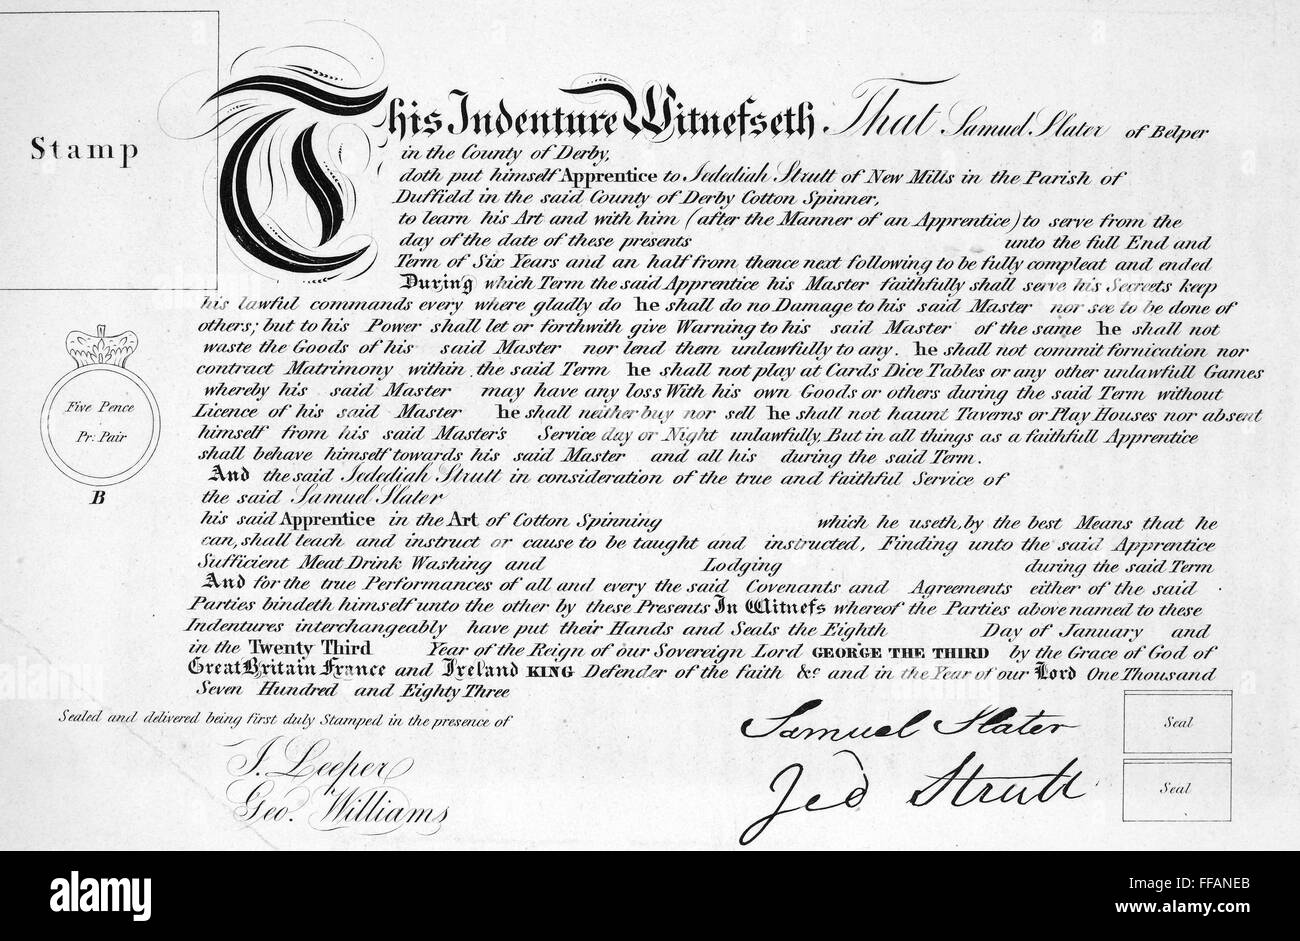 Stamp
This Indenture Witnefseth That Samuel Slater of Belper
in the County of Derby,
doth put himself Apprentice to Jedediah Strutt of New Mills in the Parish of
Duffield in the said County of Derby Cotton Spinner,
to learn his Art and with him (after the Manner of an Apprentice) to serve from the
day of the date of these presents unto the full End and
Term of Six Years and an half from thence next following to be fully compleat and ended
During which Term the said Apprentice his Master faithfully shall serve his Secrets keep
his lawful commands every where gladly do he shall do no Damage to his said Master nor see to be done of
others; but to his Power shall let or forthwith give Warning to his said Master of the same he shall not
waste the Goods of his said Master nor lend them unlawfully to any. he shall not commit fornication nor
contract Matrimony within the said Term he shall not play at Cards Dice Tables or any other unlawfull Games
whereby his said Master may have any loss With his own Goods or others during the said Term without
Licence of his said Master he shall neither buy nor sell he shall not haunt Taverns or Play Houses nor absent
himself from his said Master's Service day or Night unlawfully, But in all things as a faithfull Apprentice
shall behave himself towards his said Master and all his during the said Term.
And the said Jedediah Strutt in consideration of the true and faithful Service of
the said Samuel Slater
his said Apprentice in the Art of Cotton Spinning which he useth, by the best Means that he
can, shall teach and instruct or cause to be taught and instructed, Finding unto the said Apprentice
Sufficient Meat Drink Washing and Lodging during the said Term
And for the true Performances of all and every the said Covenants and Agreements either of the said
Parties bindeth himself unto the other by these Presents In Witnefs whereof the Parties above named to these
Indentures interchangeably have put their Hands and Seals the Eighth Day of January and
in the Twenty Third Year of the Reign of our Sovereign Lord GEORGE THE THIRD by the Grace of God of
Great Britain France and Ireland KING Defender of the faith &c and in the Year of our Lord One Thousand
Seven Hundred and Eighty Three
Five Pence
Pr. Pair
B
Sealed and delivered being first duly Stamped in the presence of
J. Leeper
Geo. Williams
Samuel Slater
Jed Strutt
Seal
Seal
alamy
Image ID: FFANEB
www.alamy.com